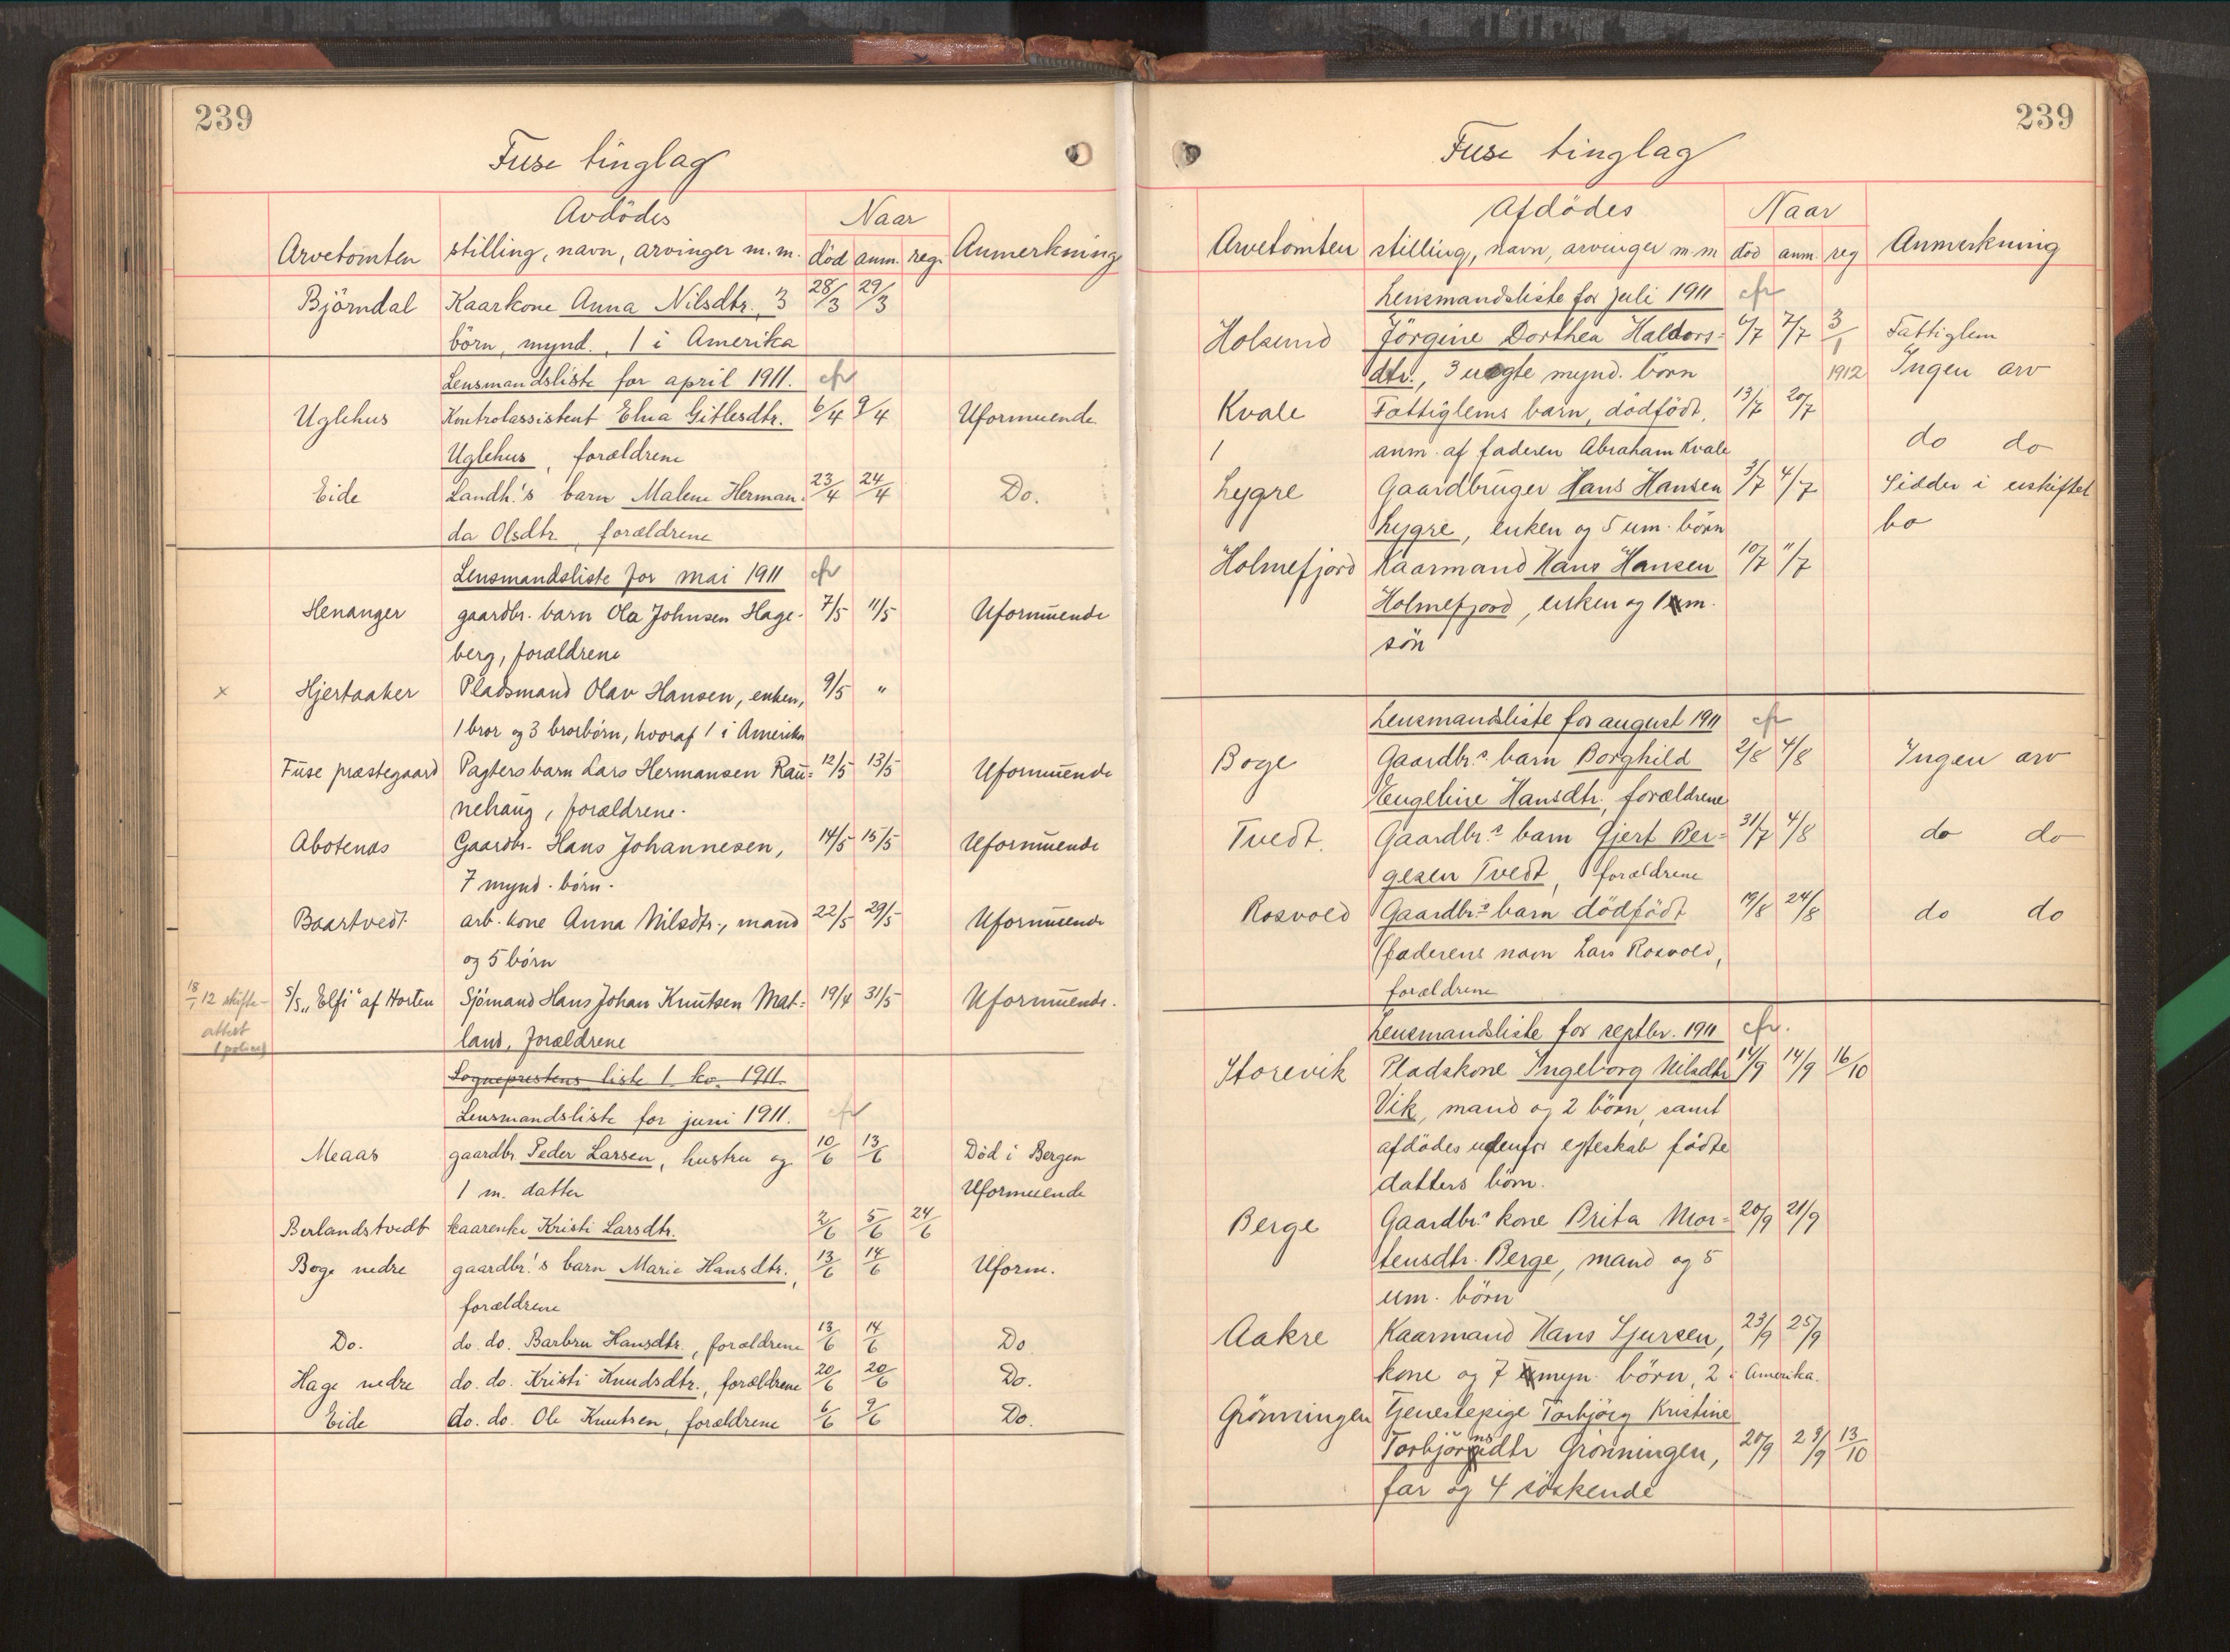 239
Fuse tinglag
Arvetomten
Avdödes
stilling, navn, arvinger m. m.
Naar
död anm. reg.
Anmerkning
Björndal Kaarkone Anna Nilsdtr., 3 28/3 29/3
börn, mynd., 1 i Amerika
Lensmandsliste for april 1911. cfr
Uglehus Kontrolassistent Elna Gitlesdtr. 6/4 9/4 Uformuende
Uglehus, forældrene
Eide Landh.'s barn Malene Herman- 23/4 24/4 Do.
da Olsdtr., forældrene
Lensmandsliste for mai 1911 cfr
Henanger gaardbr. barn Ola Johnsen Hage- 7/5 11/5 Uformuende
berg, forældrene
x Hjertaaker Pladsmand Olav Hansen, enken, 9/5 "
1 bror og 3 brorbörn, hvoraf 1 i Amerika
Fuse præstegaard Pagters barn Lars Hermansen Rau= 12/5 13/5 Uformuende
nehaug, forældrene.
Abotenæs Gaardbr. Hans Johannesen, 14/5 15/5 Uformuende
7 mynd. börn.
Baartvedt arb. kone Anna Nilsdtr., mand 22/5 29/5 Uformuende
og 5 börn
18/1 12 skifte- S/S „Elfi" af Horten Sjömand Hans Johan Knutsen Mat= 19/4 31/5 Uformuende.
attest land, forældrene
(police)
Sogneprestens liste 1. kv. 1911.
Lensmandsliste for juni 1911. cfr
Meaas gaardbr. Peder Larsen, hustru og 10/6 13/6 Död i Bergen
1 m. datter Uformuende
Berlandstvedt kaarenke Kristi Larsdtr. 2/6 5/6 24/6
Boge nedre gaardbr.'s barn Marie Hansdtr., 13/6 14/6 Uform.
forældrene
Do. do. do. Barbru Hansdtr., forældrene 13/6 14/6 Do
Hage nedre do. do. Kristi Knudsdtr., forældrene 20/6 20/6 Do.
Eide do. do. Ole Knutsen, forældrene 6/6 9/6 Do.
239
Fuse tinglag
Arvetomten
Afdödes
stilling, navn, arvinger m m
Naar
död anm. reg
Anmerkning
Lensmandsliste for juli 1911 cfr
Holsund Jörgine Dorthea Haldors= 6/7 7/7 3/1 Fattiglem
dtr., 3 uegte mynd. börn 1912 Ingen arv
Kvale Fattiglems barn, dödfödt. 13/7 20/7
1 anm. af faderen Abraham Kvale do do
Lygre Gaardbruger Hans Hansen 3/7 4/7 Sidder i uskiftet
Lygre, enken og 5 um. börn bo
Holmefjord Kaarmand Hans Hansen 10/7 11/7
Holmefjord, enken og 1 m.
sön
Lensmandsliste for august 1911 cfr
Boge Gaardbr.s barn Borghild 2/8 4/8 Ingen arv
Engeline Hansdtr., forældrene
Tvedt. Gaardbr.s barn Gjert Ber= 31/7 4/8 do do
gesen Tvedt, forældrene
Rosvold Gaardbr.s barn dödfödt 19/8 24/8 do do
(faderens navn Lars Rosvold,
forældrene
Lensmandsliste for septbr. 1911 cfr.
Storevik Pladskone Ingeborg Nilsdtr 14/9 14/9 16/10
Vik, mand og 2 börn, samt
afdödes udenfor egteskab födte
datters börn.
Berge Gaardbr.s kone Brita Mor= 20/9 21/9
tensdtr. Berge, mand og 5
um. börn
Aakre Kaarmand Hans Sjursen, 23/9 25/9
kone og 7 myn. börn, 2 i Amerika.
Grönningen Tjenestepige Torbjörg Kristine
Torbjörnsdtr Grönningen, 20/9 29/9 13/10
far og 4 söskende